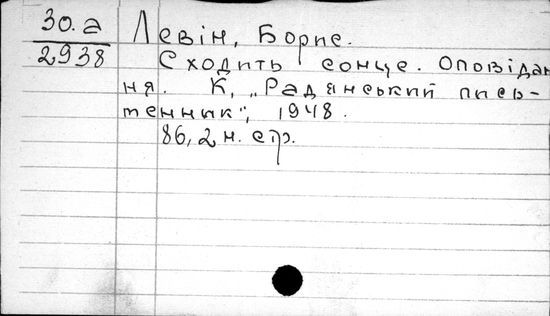 30.а
2938
Левін, Борис.
Сходить сонце. Оповідан
ня. К, „Радянський пись-
менник", 1948.
86, 2 н. стр.